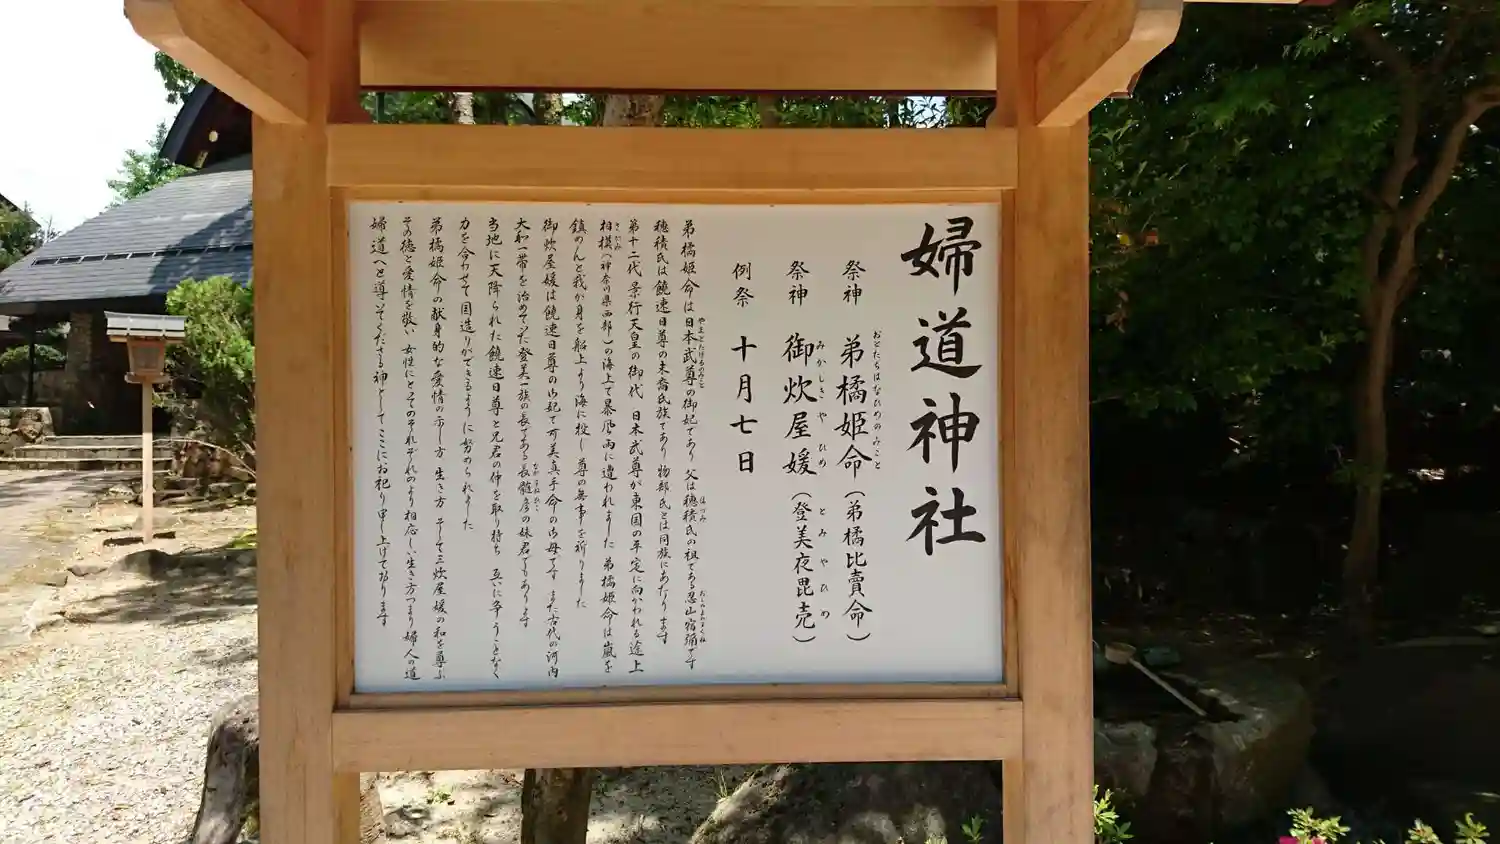 婦道神社
祭神 弟橘姫命(弟橘比賣命)
おとたちばなひめのみこと
祭神 御炊屋媛(登美夜毘売)
みかしきやひめ とみやひめ
例祭 十月七日
弟橘姫命は日本武尊の御妃であり 父は穂積氏の祖である忍山宿禰です
やまとたけるのみこと ほづみ おしのやまのすくね
穂積氏は饒速日尊の末裔氏族であり 物部氏とは同族にあたります
第十二代 景行天皇の御代 日本武尊が東国の平定に向かわれる途上
相模(神奈川県西部)の海上で暴風雨に遭われました 弟橘姫命は嵐を
さがみ
鎮めんと我が身を船上より海に投じ 尊の無事を祈りました
御炊屋媛は饒速日尊の御妃で可美真手命の御母です また古代の河内
大和一帯を治めていた登美一族の長である長髄彦の妹君でもあります
ながすねひこ
当地に天降られた饒速日尊と兄君の仲を取り持ち 互いに争うことなく
力を合わせて国造りができるように努められました
弟橘姫命の献身的な愛情の示し方 生き方 そして三炊屋媛の和を尊ぶ
その徳と愛情を敬い 女性にとってのそれぞれのより相応しい生き方つまり婦人の道
婦道へと導いてくださる神として ここにお祀り申し上げております